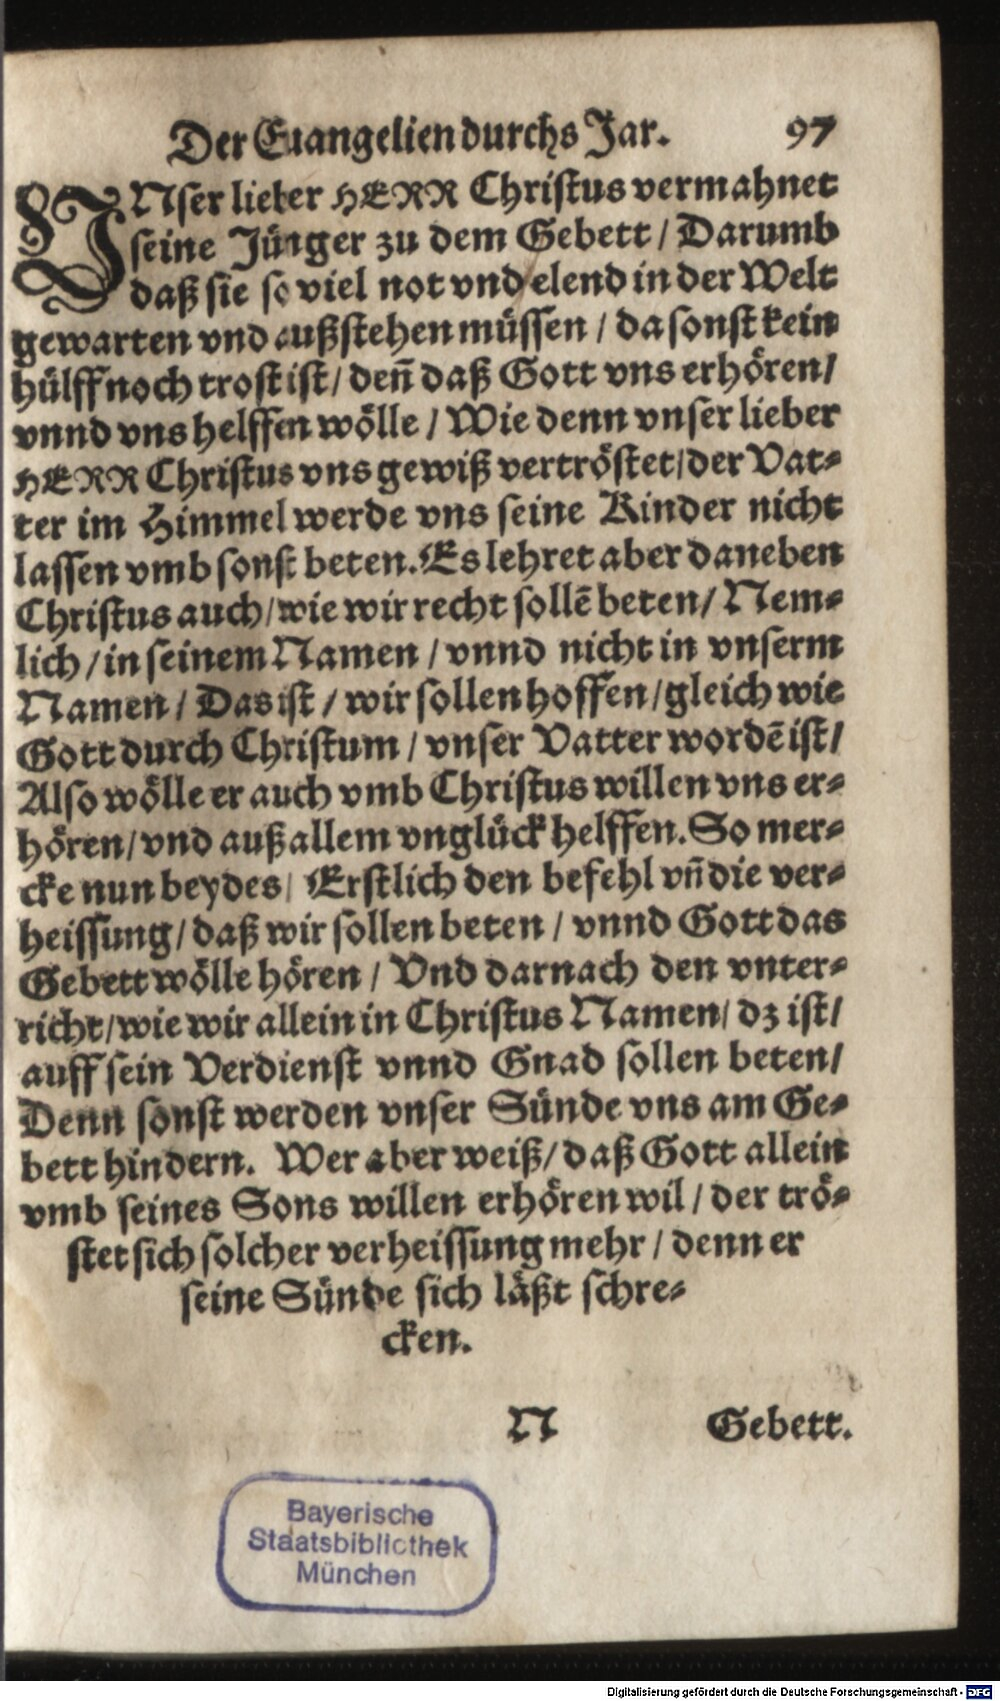 Der Euangelien durchs Jar. 97
VNser lieber HERR Christus vermahnet
seine Jünger zu dem Gebett / Darumb
daß sie so viel not vnd elend in der Welt
gewarten vnd außstehen müssen / da sonst kein
hülff noch trost ist / deñ daß Gott vns erhören /
vnnd vns helffen wölle / Wie denn vnser lieber
HERR Christus vns gewiß vertröstet / der Vat-
ter im Himmel werde vns seine Kinder nicht
lassen vmb sonst beten. Es lehret aber daneben
Christus auch / wie wir recht sollē beten / Nem-
lich / in seinem Namen / vnnd nicht in vnserm
Namen / Das ist / wir sollen hoffen / gleich wie
Gott durch Christum / vnser Vatter wordē ist /
Also wölle er auch vmb Christus willen vns er-
hören / vnd auß allem vnglück helffen. So mer-
cke nun beydes / Erstlich den befehl vñ die ver-
heissung / daß wir sollen beten / vnnd Gott das
Gebett wölle hören / Vnd darnach den vnter-
richt / wie wir allein in Christus Namen / dz ist /
auff sein Verdienst vnnd Gnad sollen beten /
Denn sonst werden vnser Sünde vns am Ge-
bett hindern. Wer aber weiß / daß Gott allein
vmb seines Sons willen erhören wil / der trö-
stet sich solcher verheissung mehr / denn er
seine Sünde sich läßt schre-
cken.
N Gebett.
Bayerische
Staatsbibliothek
München
Digitalisierung gefördert durch die Deutsche Forschungsgemeinschaft - DFG